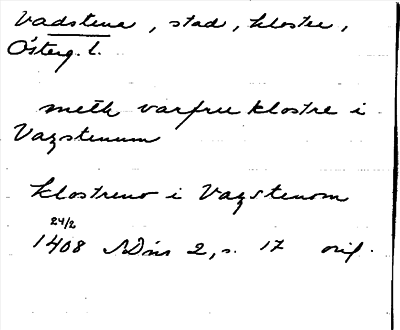 Vadstena, stad, kloster,
Österg. l.
meth varfru klostre i
Vazstenum
klostreno i Vazstenom
24/2
1408 SDns 2, s. 17 orig.